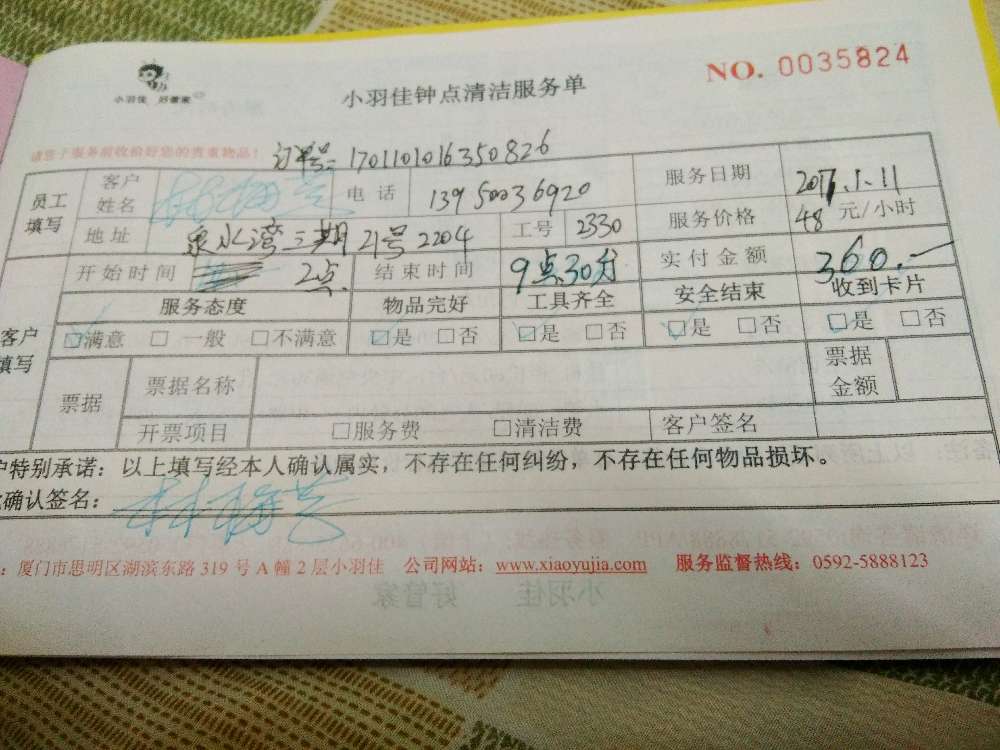 小羽佳 好管家
小羽佳钟点清洁服务单
NO. 0035824
请您于服务前收拾好您的贵重物品!
订单号: 1701101016350826
员工填写 客户姓名 林梅芳 电话 13950036920 服务日期 2017.1.11
地址 泉水湾三期21号2204 工号 2330 服务价格 48 元/小时
开始时间 2点 结束时间 9点30分 实付金额 360.-
客户填写 服务态度 物品完好 工具齐全 安全结束 收到卡片
☑满意 □一般 □不满意 ☑是 □否 ☑是 □否 ☑是 □否 ☑是 □否
票据 票据名称 票据金额
开票项目 □服务费 □清洁费 客户签名
户特别承诺:以上填写经本人确认属实,不存在任何纠纷,不存在任何物品损坏。
确认签名: 林梅芳
:厦门市思明区湖滨东路 319 号 A 幢 2 层小羽佳 公司网站:www.xiaoyujia.com 服务监督热线:0592-5888123